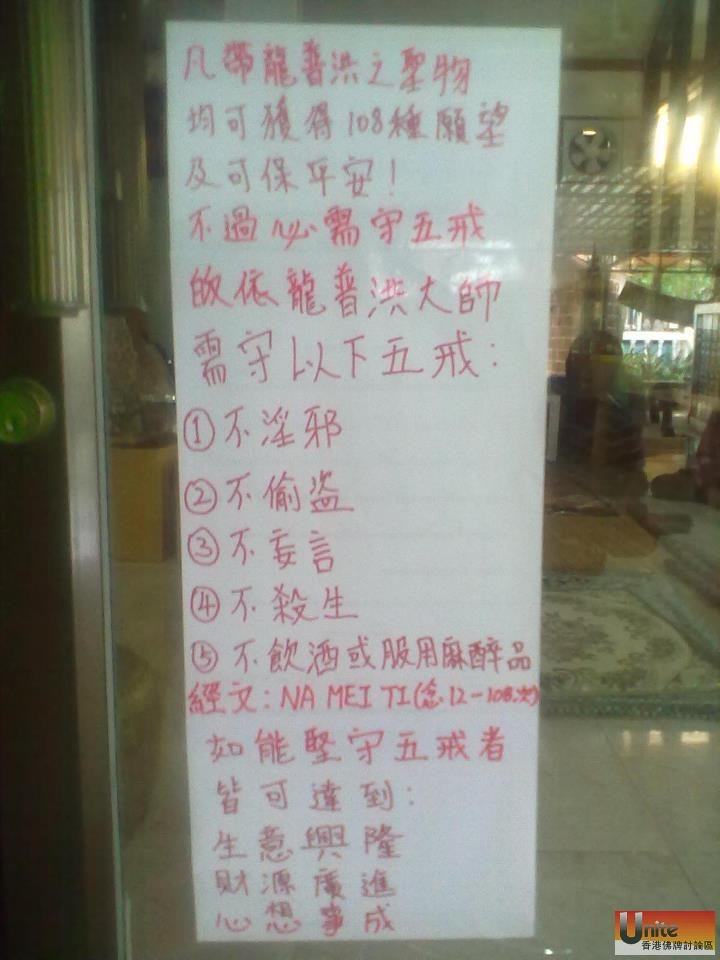 凡帶龍普洪之聖物
均可獲得108種願望
及可保平安!
不過必需守五戒
皈依龍普洪大師
需守以下五戒:
①不淫邪
②不偷盜
③不妄言
④不殺生
⑤不飲酒或服用麻醉品
經文:NA MEI TI(念12-108次)
如能堅守五戒者
皆可達到:
生意興隆
財源廣進
心想事成
Unite
香港佛牌討論區